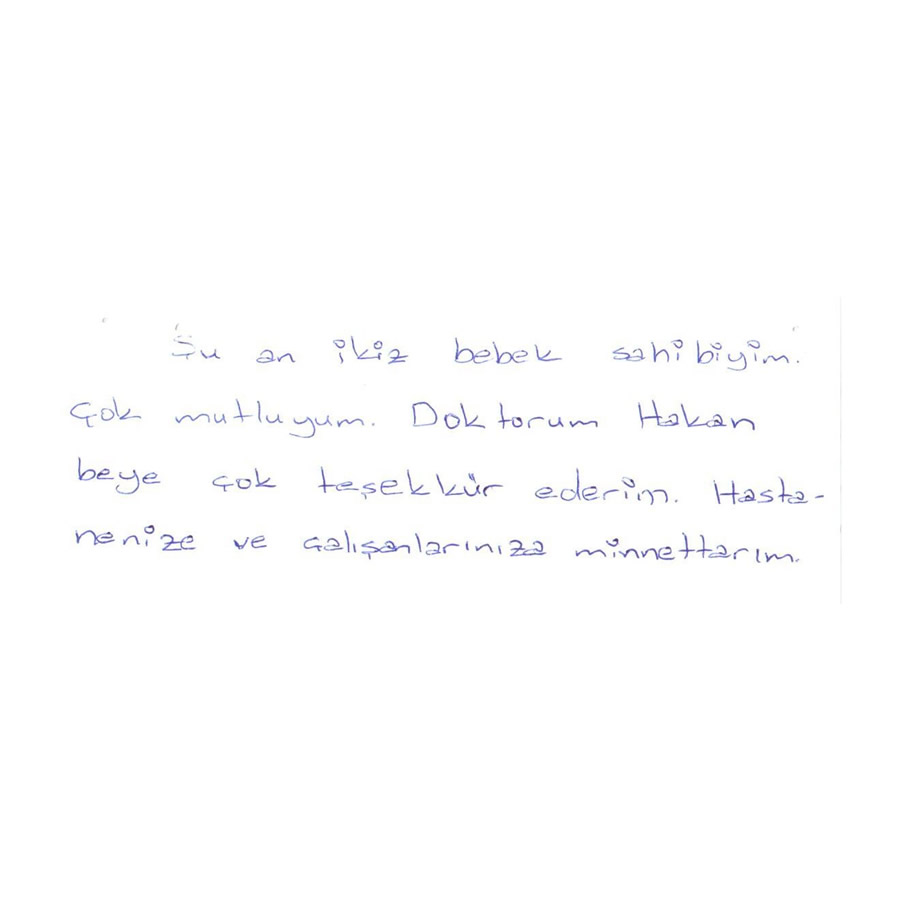 Şu an ikiz bebek sahibiyim.
Çok mutluyum. Doktorum Hakan
beye çok teşekkür ederim. Hasta-
nenize ve çalışanlarınıza minnettarım.